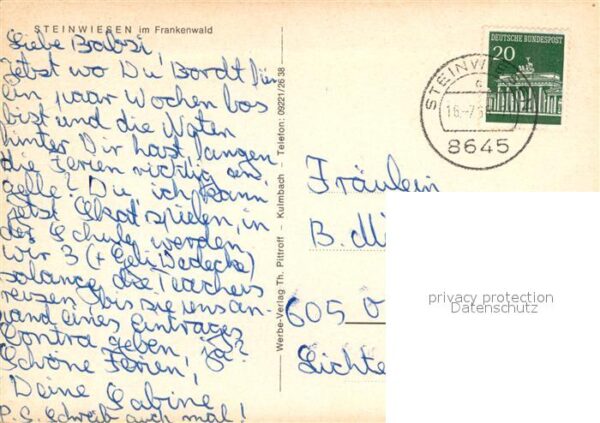 STEINWIESEN im Frankenwald
Liebe Babsi,
jetzt wo Du Bordt für
ein paar Wochen los
bist und die Noten
hinter Dir hast, fangen
die Ferien richtig an
gelle? Du ich kann
jetzt Skat spielen, in
der Schule werden
wir 3 (+ Geli Dedecke)
solange die Teachers
reizen, bis sie uns an-
hand eines Eintrages
Contra geben, ja?
Schöne Ferien,
Deine Sabine
P.S. Schreib auch mal!
Werbe-Verlag Th. Pittroff - Kulmbach - Telefon: 09221/26 38
20 DEUTSCHE BUNDESPOST
STEINWIESEN
8645
Fräulein
B.
605 O
privacy protection
Datenschutz